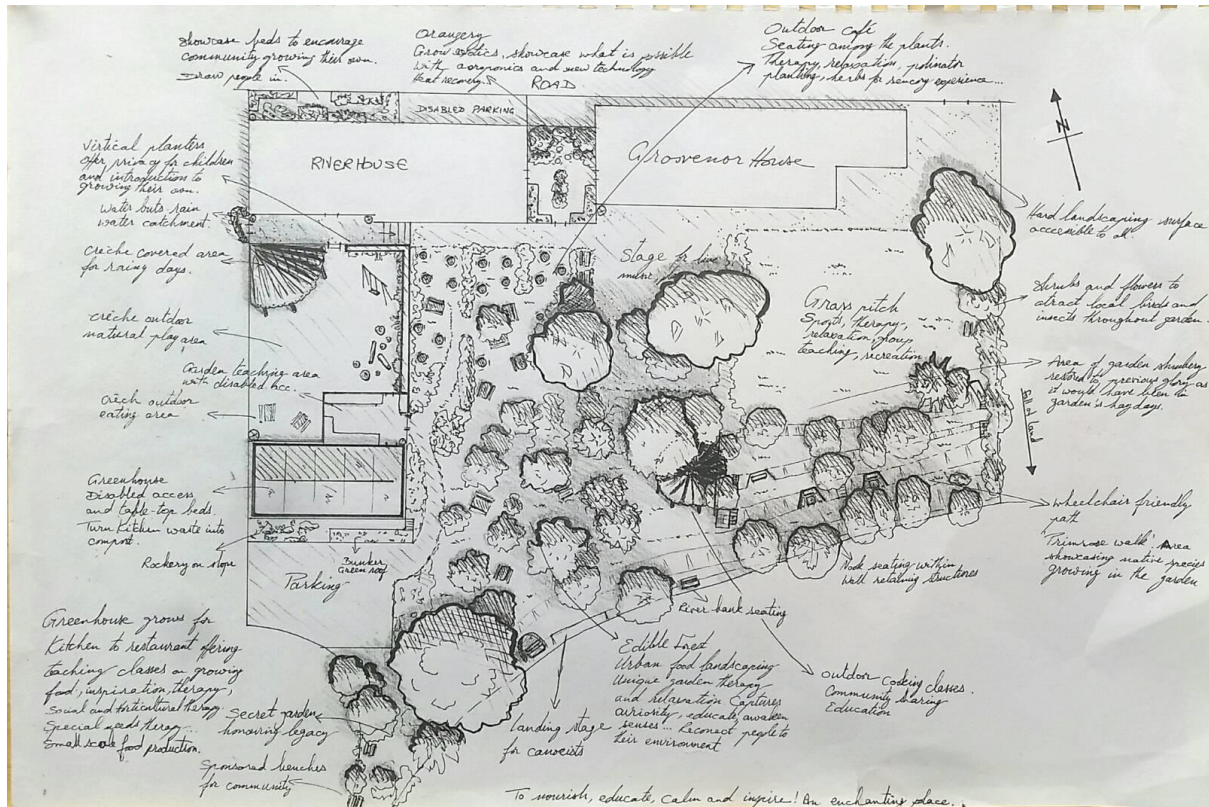 Showcase beds to encourage
community growing their own.
Draw people in.
Orangery
Grow exotics, showcase what is possible
with aeroponics and new technology
Heat recovery.
ROAD
Outdoor café
Seating among the plants.
Therapy, relaxation, polinator
planting, herbs for sensory experience...
DISABLED PARKING
N
RIVERHOUSE
Grosvenor House
Vertical planters
offer privacy for children
and introduction to
growing their own.
Water buts rain
water catchment.
Crèche covered area
for rainy days.
Crèche outdoor
natural play area
Garden teaching area
with disabled acc.
Crèch outdoor
eating area
Greenhouse
Disabled access
and table top beds.
Turn kitchen waste into
compost.
Rockery on slope
Bunker
Green roof
Parking
Stage for live
music
Grass pitch
Sports, therapy,
relaxation, group
teaching, recreation
Hard landscaping surface
accessible to all.
Shrubs and flowers to
atract local birds and
insects throughout garden.
Area of garden shrubery
restored to previous glory as
it would have been in
garden's haydays.
Fall of land
wheelchair friendly
path
'Primrose walk' Area
showcasing native species
growing in the garden
Nook seating within
wall retaining structures
River bank seating
Greenhouse grows for
Kitchen to restaurant offering
teaching classes on growing
food, inspiration, therapy,
Social and horticultural therapy.
Special needs therapy...
Small scale food production.
Secret garden
honouring legacy
Sponsored benches
for community
landing stage
for canoeists
Edible Forest
Urban food landscaping
Unique garden therapy
and relaxation Captures
curiosity, educate, awaken
senses... Reconect people to
their environment
outdoor cooking classes.
Community sharing
Education
To nourish, educate, calm and inspire! An enchanting place...